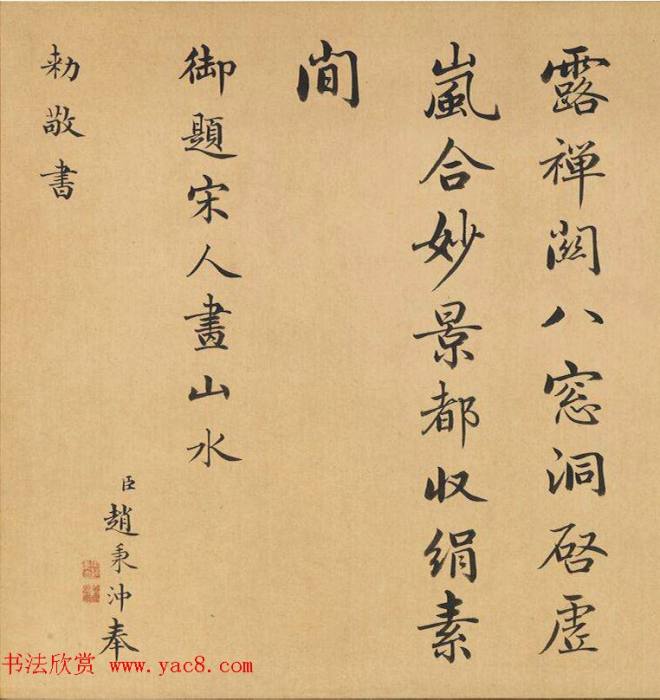 露禅關八窓洞啓虚
嵐合妙景都収絹素
間
御題宋人畫山水
臣趙秉沖奉
勅敬書
书法欣赏 www.yac8.com